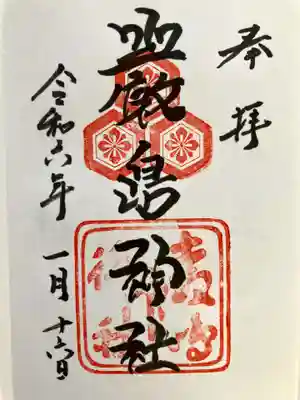 奉拝
嚴島神社
令和六年 一月十六日